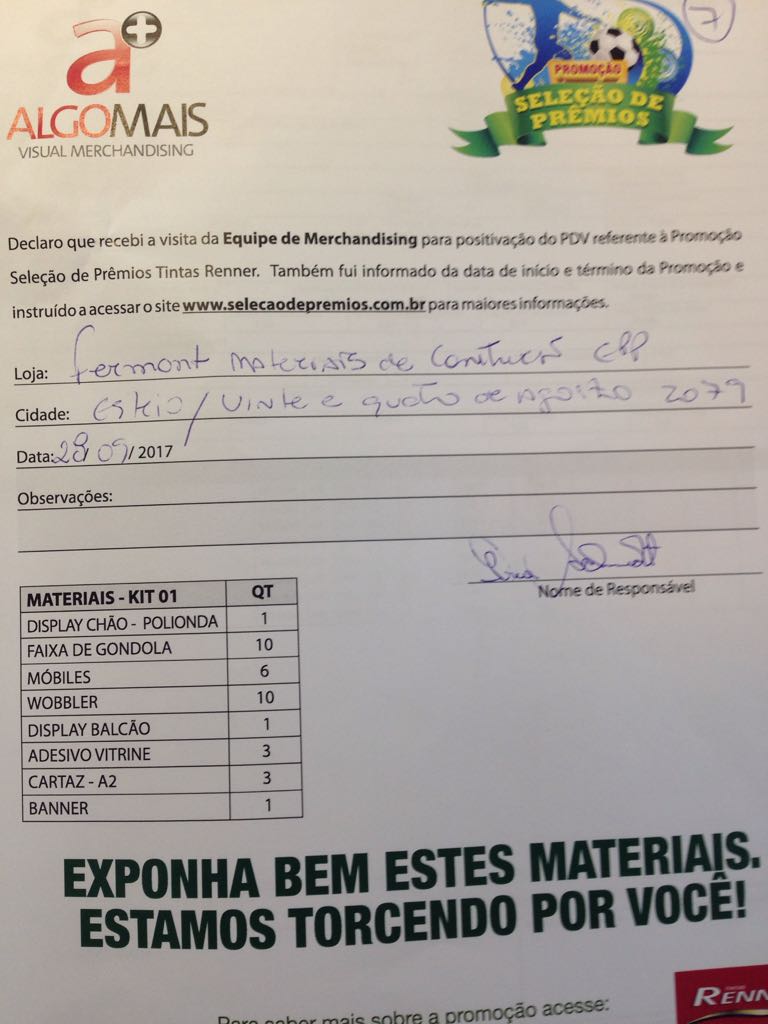 a+
ALGOMAIS
VISUAL MERCHANDISING
7
PROMOÇÃO
SELEÇÃO DE
PRÊMIOS
Declaro que recebi a visita da Equipe de Merchandising para positivação do PDV referente à Promoção
Seleção de Prêmios Tintas Renner. Também fui informado da data de início e término da Promoção e
instruído a acessar o site www.selecaodepremios.com.br para maiores informações.
Loja: Fermont Materiais de
Cidade: Esteio / Vinte e quatro de Agosto 2079
Data: 28/09/2017
Observações:
Nome de Responsável
MATERIAIS - KIT 01 QT
DISPLAY CHÃO - POLIONDA 1
FAIXA DE GONDOLA 10
MÓBILES 6
WOBBLER 10
DISPLAY BALCÃO 1
ADESIVO VITRINE 3
CARTAZ - A2 3
BANNER 1
EXPONHA BEM ESTES MATERIAIS.
ESTAMOS TORCENDO POR VOCÊ!
RENN
Para saber mais sobre a promoção acesse: